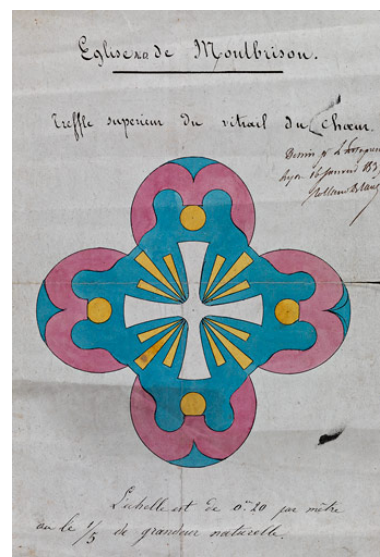 Eglise de Montbrison.
treffle superieur du vitrail du Chœur
Dessin p
Lyon 16 janvier
L'échelle est de 0.m 20 par mètre
ou le 1/5 de grandeur naturelle.